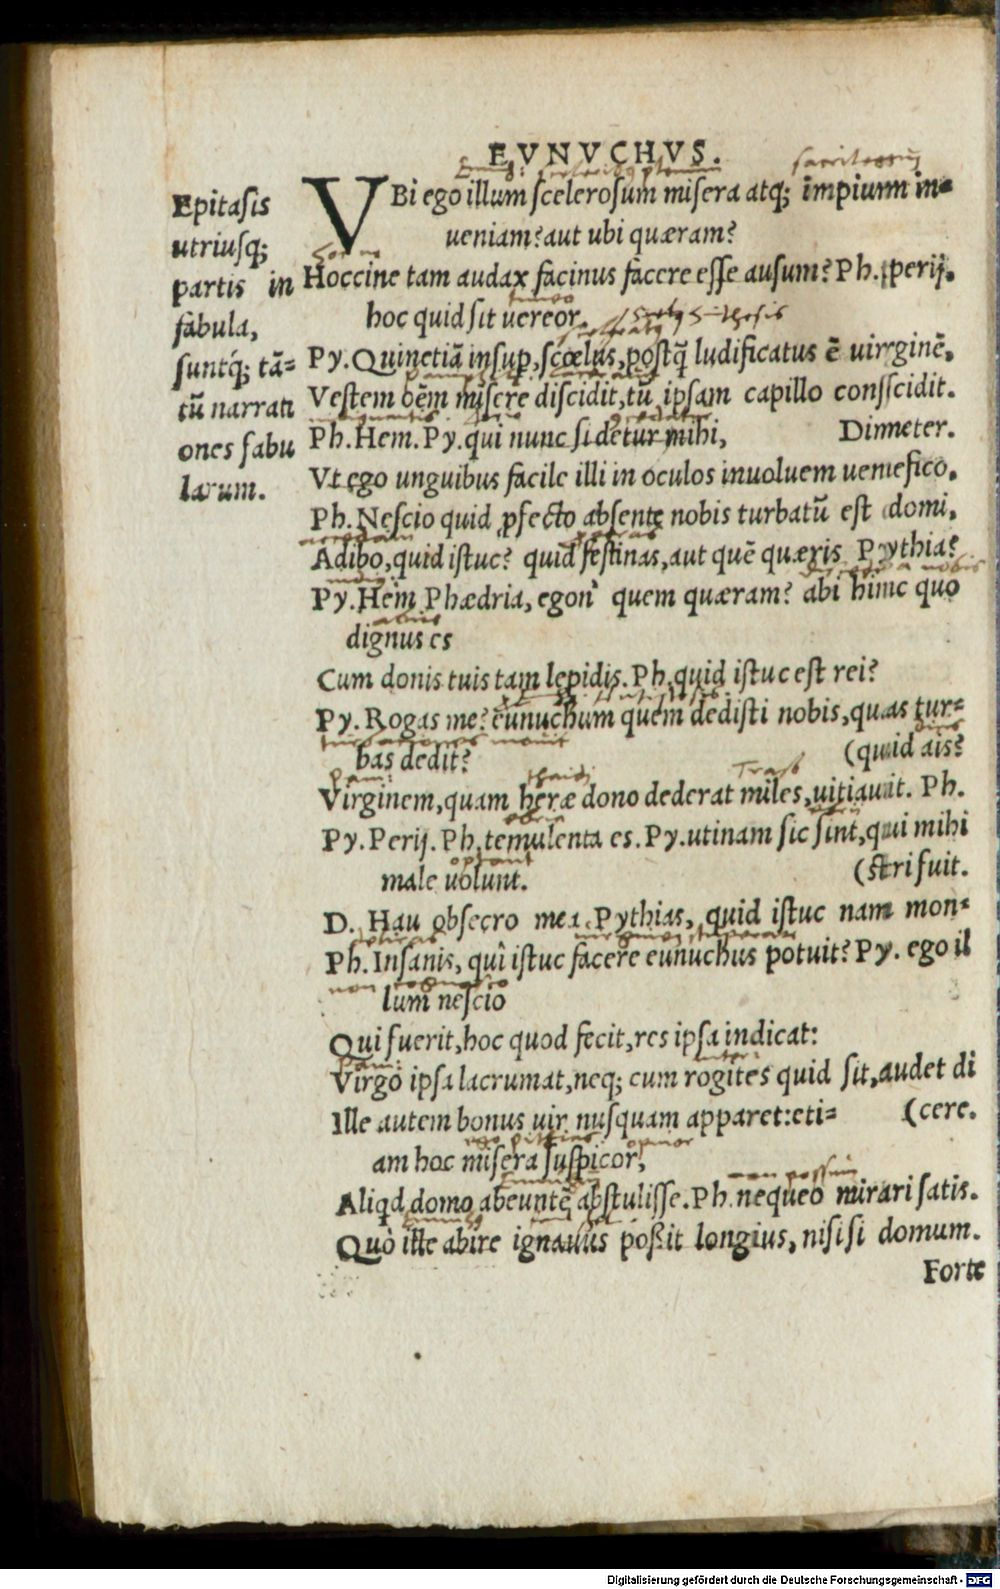 EVNVCHVS.
Epitasis
utriusq;
partis in
fabula,
suntq́; tã=
tũ narrati
ones fabu
larum.
VBi ego illum scelerosum misera atq; impium in=
ueniam? aut ubi quæram?
Hoccine tam audax facinus facere esse ausum? Ph. perij.
hoc quid sit uereor.
Py. Quinetiã insup, scœlus, postq̃ ludificatus ẽ uirginẽ.
Vestem oẽm misere discidit, tũ ipsam capillo consscidit.
Ph. Hem. Py. qui nunc si detur mihi, Dimeter.
Vt ego unguibus facile illi in oculos inuoluem uenefico.
Ph. Nescio quid ꝓfecto absente nobis turbatũ est domi,
Adibo, quid istuc? quid festinas, aut quẽ quæris Pythia?
Py. Hem Phædria, egon' quem quæram? abi hinc quo
dignus es
Cum donis tuis tam lepidis. Ph. quid istuc est rei?
Py. Rogas me? eunuchum quem dedisti nobis, quas tur=
bas dedit? (quid ais?
Virginem, quam heræ dono dederat miles, uitiauit. Ph.
Py. Perij. Ph. temulenta es. Py. utinam sic sint, qui mihi
male uolunt. (stri fuit.
D. Hau obsecro mea Pythias, quid istuc nam mon=
Ph. Insanis, qui istuc facere eunuchus potuit? Py. ego il
lum nescio
Qui fuerit, hoc quod fecit, res ipsa indicat:
Virgo ipsa lacrumat, neq; cum rogites quid sit, audet di
Ille autem bonus uir nusquam apparet: eti= (cere.
am hoc misera suspicor,
Aliqd domo abeuntẽ abstulisse. Ph. nequeo mirari satis.
Quo ille abire ignauus poßit longius, nisi si domum.
Forte
Digitalisierung gefördert durch die Deutsche Forschungsgemeinschaft - DFG